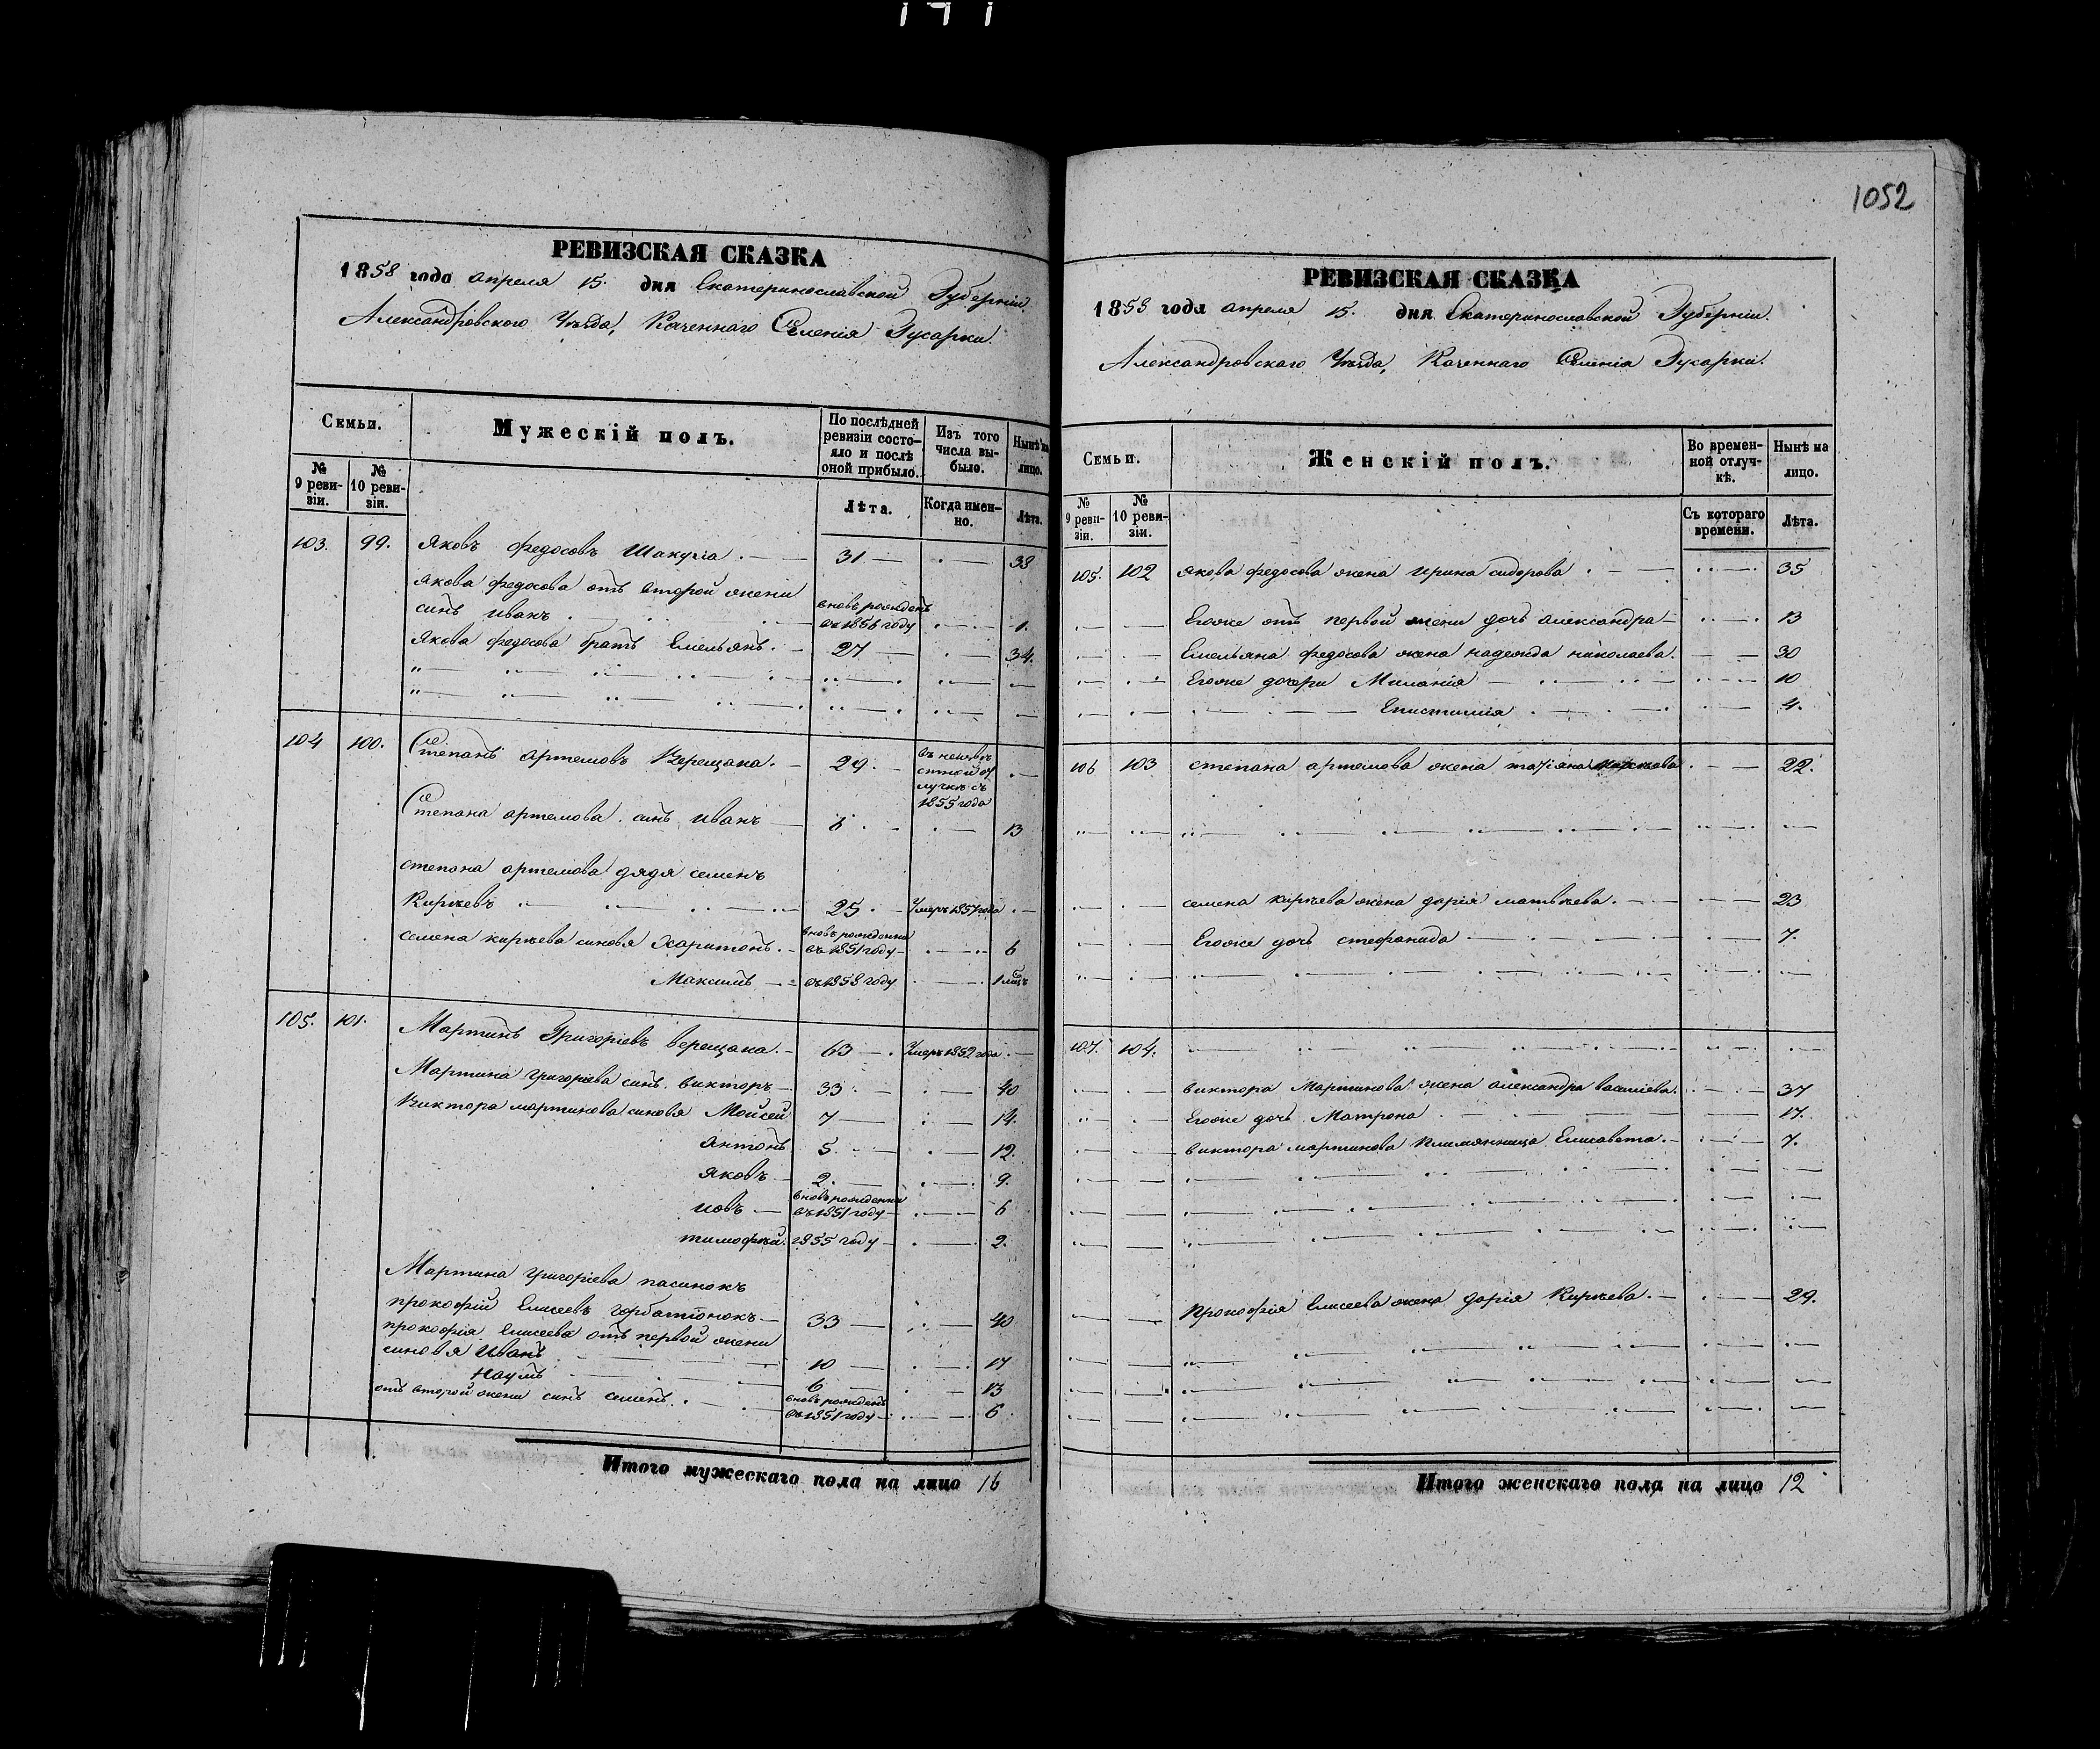 1052
РЕВИЗСКАЯ СКАЗКА
1858 года апреля 15. дня Екатеринославской Губерніи.
Александровского Уѣзда, Казеннаго Селенія Гусарки.
Семьи.
Мужескій полъ.
По послѣдней ревизіи состояло и послѣ оной прибыло.
Изъ того числа выбыло.
Нынѣ на лицо.
№ 9 ревизіи.
№ 10 ревизіи.
Лѣта.
Когда именно.
Лѣта.
103. 99. Яковъ Федосовъ 31 38
Якова Федосова отъ второй жени
синъ Иванъ вновь рожденъ въ 1856 году 1.
Якова Федосова братъ Емельянъ. 27 34.
104 100. Степанъ Артемовъ Верещака. 29. въ неизвѣстной отлучке съ 1855 года
Степана Артемова синъ Иванъ 6 13
Степана Артемова дядя Семенъ
Кирѣевъ 25. Умеръ 1857 года
Семена Кирѣева синовя Харитонъ. вновь рожденни въ 1851 году 6
Максимъ въ 1858 году 1 мцъ
105. 101. Мартинъ Григоріевъ Верещака. 63 Умеръ 1852 года
Мартина Григоріева синъ Викторъ 33 40
Виктора Мартинова синовя Мойсей 7 14.
Антонъ 5 12.
Яковъ 2. 9.
Иовъ вновь рожденни въ 1851 году 6
Тимофѣй. 1855 году 2.
Мартина Григоріева пасинокъ
Прокофій Елисеевъ 33 40
Прокофія Елисеева отъ первой жени
синовя Иванъ 10 17
Наумъ 6 13
отъ второй жени синъ Семенъ. вновь рожденъ въ 1851 году 6
Итого мужескаго пола на лицо 16
РЕВИЗСКАЯ СКАЗКА
1858 года апреля 15. дня Екатеринославской Губерніи.
Александровскаго Уѣзда, Казеннаго Селенія Гусарки.
Семьи.
Женскій полъ.
Во временной отлучкѣ.
Нынѣ на лицо.
№ 9 ревизіи.
№ 10 ревизіи.
Съ котораго времени.
Лѣта.
105. 102 Якова Федосова жена Ирина Сидорова 35
Егоже отъ первой жени дочь Александра 13
Емельяна Федосова жена Надежда Николаева. 30
Егоже дочери Миланія 10
Епистимія 4.
106 103 Степана Артемова жена Татіяна 22.
Семена Кирѣева жена Дарія Матвѣева. 23
Егоже дочь Стефанида 7.
107. 104.
Виктора Мартинова жена Александра Василіева. 37
Егоже дочь Матрона 17.
Виктора Мартинова племянница Елисавета. 7.
Прокофія Елисеева жена Дарія Кирѣева. 29.
Итого женскаго пола на лицо 12